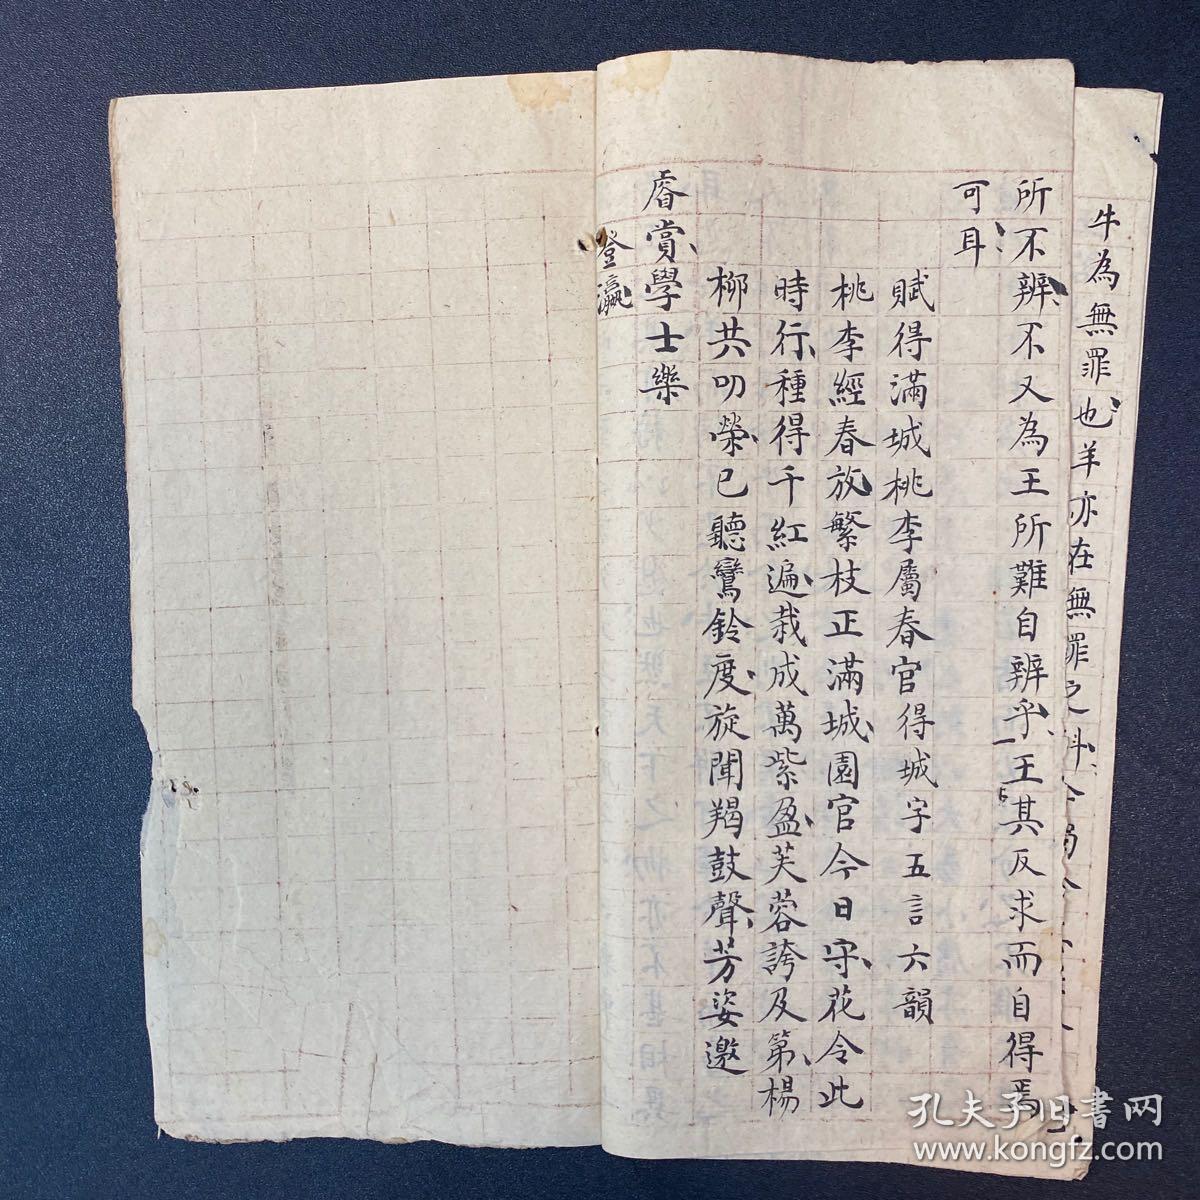 牛為無罪也羊亦在無罪之
所不辨不又為王所難自辨乎王其反求而自得焉
可耳
賦得滿城桃李屬春官得城字五言六韻
桃李經春放繁枝正滿城園官今日守花令此
時行種得千紅遍栽成萬紫盈芙蓉誇及第楊
柳共叨榮已聽鸞鈴度旋聞羯鼓聲芳姿邀
睿賞學士樂
登瀛
孔夫子旧书网
www.kongfz.com